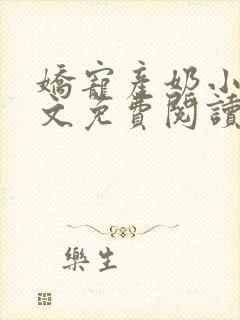 嬌寵産奶小
文免費閱讀
樂生